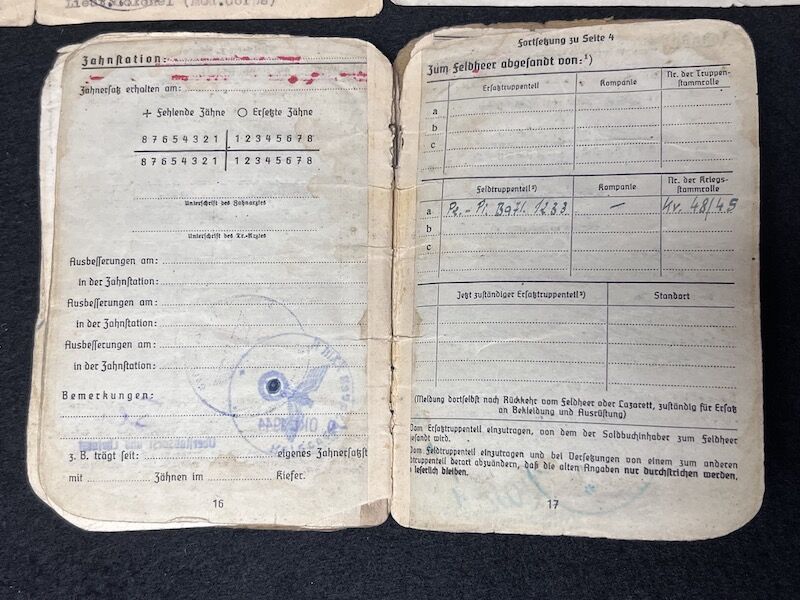 Lieut.Colonel (Med.Corps)
Zahnstation:
Zahnersatz erhalten am:
+ Fehlende Zähne O Ersetzte Zähne
8 7 6 5 4 3 2 1 1 2 3 4 5 6 7 8
8 7 6 5 4 3 2 1 1 2 3 4 5 6 7 8
Unterschrift des Zahnarztes
Unterschrift des Tr.-Arztes
Ausbesserungen am:
in der Zahnstation:
Ausbesserungen am:
in der Zahnstation:
Ausbesserungen am:
in der Zahnstation:
Bemerkungen:
1944
z. B. trägt seit: eigenes Zahnersatzst
mit Zähnen im Kiefer.
16
Fortsetzung zu Seite 4
Zum Feldheer abgesandt von:¹)
Ersatztruppenteil Kompanie Nr. der Truppen-
stammrolle
a
b
c
Feldtruppenteil²) Kompanie Nr. der Kriegs-
stammrolle
a Pz.-Pi. Batl. 1233 — Kr. 48/45
b
c
Jetzt zuständiger Ersatztruppenteil³) Standort
(Meldung dortselbst nach Rückkehr vom Feldheer oder Lazarett, zuständig für Ersatz
an Bekleidung und Ausrüstung)
Vom Ersatztruppenteil einzutragen, von dem der Soldbuchinhaber zum Feldheer
esandt wird.
Vom Feldtruppenteil einzutragen und bei Versetzungen von einem zum anderen
dtruppenteil derart abzuändern, daß die alten Angaben nur durchstrichen werden,
leserlich bleiben.
17